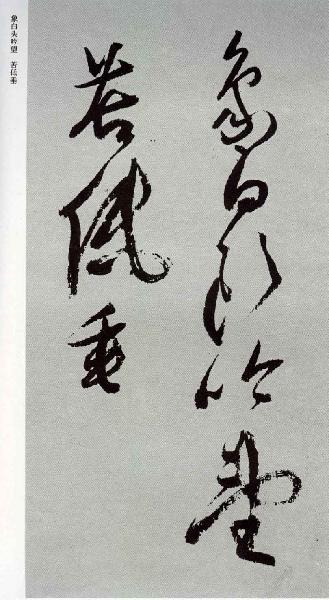 象白头吟望
苦低垂
象白头吟望 苦低垂